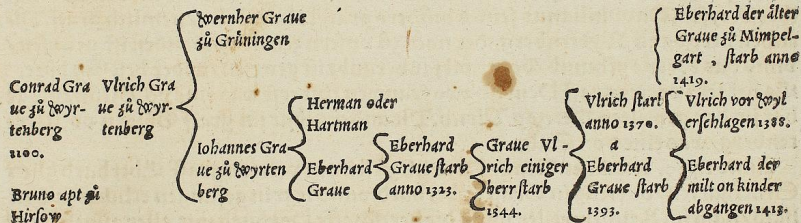 Conrad Gra
ue zů Wyr-
tenberg
1100.
Bruno apt zů
Hirsow
Vlrich Gra
ue zů Wyr-
tenberg
Wernher Graue
zů Grůningen
Iohannes Gra
ue zů Wyrten
berg
Herman oder
Hartman
Eberhard
Graue
Eberhard
Graue starb
anno 1323.
Graue Vl-
rich einiger
herr starb
1344.
Vlrich starb
anno 1370.
a
Eberhard
Graue starb
1393.
Eberhard der ålter
Graue zů Mimpel-
gart, starb anno
1419.
Vlrich vor Wyl
erschlagen 1388.
Eberhard der
milt on kinder
abgangen 1413.